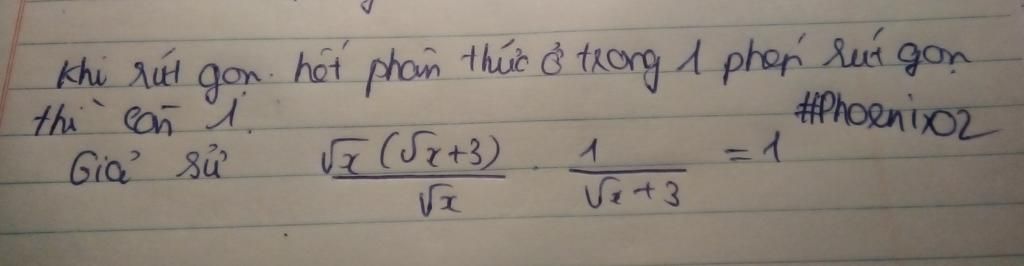 Khi rút gọn hết phân thức ở trong 1 phép rút gọn
thì còn 1.
#Phoenix02
Giả sử √x(√x+3)/√x · 1/(√x+3) = 1